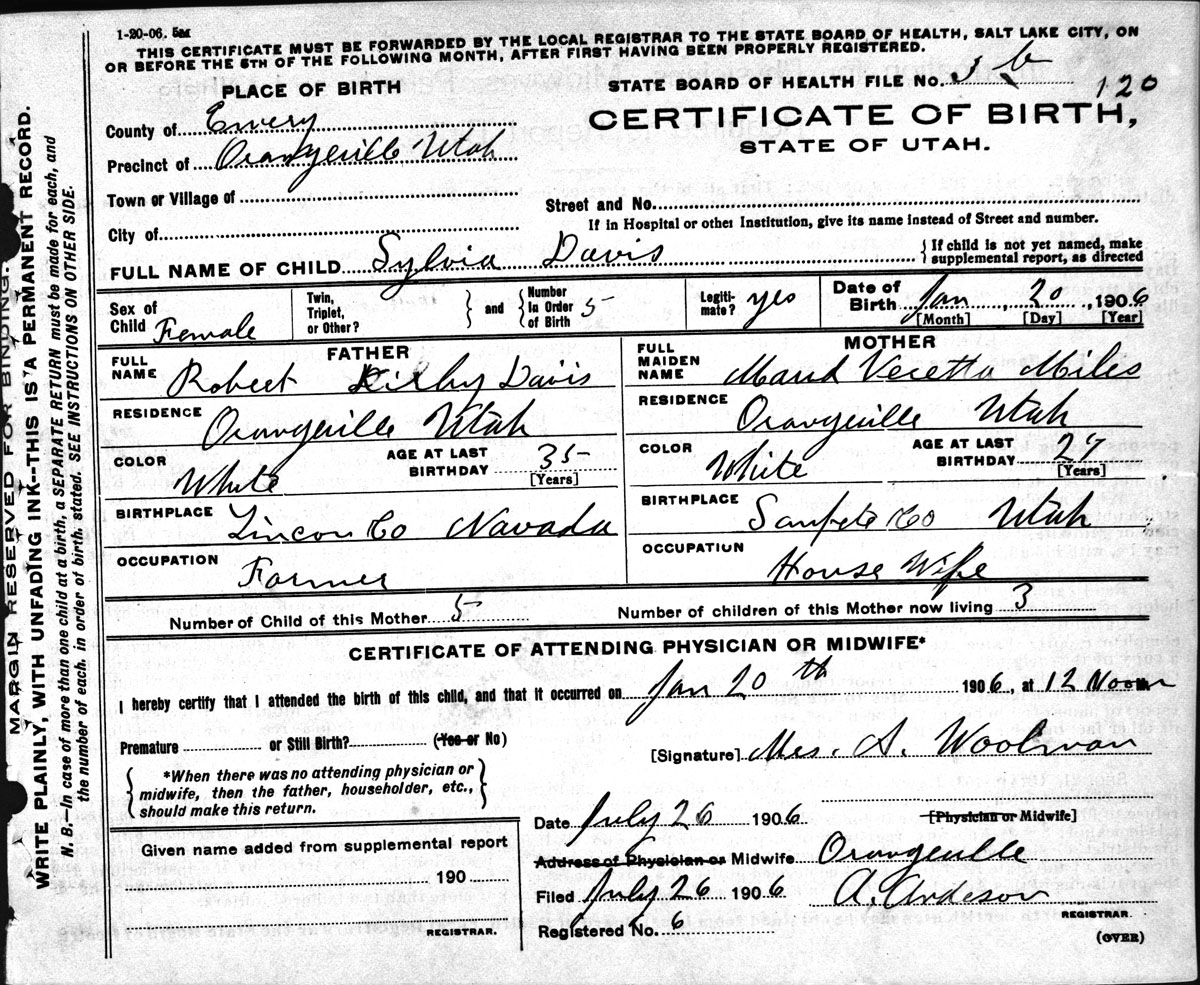 1-20-06. 5M
THIS CERTIFICATE MUST BE FORWARDED BY THE LOCAL REGISTRAR TO THE STATE BOARD OF HEALTH, SALT LAKE CITY, ON
OR BEFORE THE 5TH OF THE FOLLOWING MONTH, AFTER FIRST HAVING BEEN PROPERLY REGISTERED.
PLACE OF BIRTH
STATE BOARD OF HEALTH FILE No. 120
CERTIFICATE OF BIRTH,
STATE OF UTAH.
County of Emery
Precinct of Orangeville Utah
Town or Village of
Street and No.
If in Hospital or other Institution, give its name instead of Street and number.
City of
FULL NAME OF CHILD Sylvia Davis
{ If child is not yet named, make
supplemental report, as directed
Sex of Child Female
Twin, Triplet, or Other? } and { Number in Order of Birth 5
Legitimate? yes
Date of Birth Jan 20, 1906
[Month] [Day] [Year]
FATHER
FULL NAME Robert Kirby Davis
RESIDENCE Orangeville Utah
COLOR White
AGE AT LAST BIRTHDAY 35
[Years]
BIRTHPLACE Lincon Co Navada
OCCUPATION Farmer
MOTHER
FULL MAIDEN NAME Maud Vecetta Miles
RESIDENCE Orangeville Utah
COLOR White
AGE AT LAST BIRTHDAY 27
[Years]
BIRTHPLACE Sanpete Co Utah
OCCUPATION House Wife
Number of Child of this Mother 5
Number of children of this Mother now living 3
CERTIFICATE OF ATTENDING PHYSICIAN OR MIDWIFE*
I hereby certify that I attended the birth of this child, and that it occurred on Jan 20 th 1906, at 12 Noon
Premature or Still Birth? (Yes or No)
[Signature] Mrs. A. Woolman
{ *When there was no attending physician or
midwife, then the father, householder, etc.,
should make this return. }
[Physician or Midwife]
Date July 26 1906
Address of Physician or Midwife Orangeville
Filed July 26 1906 A. Anderson
REGISTRAR.
Registered No. 6
(OVER)
Given name added from supplemental report
190
REGISTRAR.
MARGIN RESERVED FOR BINDING.
WRITE PLAINLY, WITH UNFADING INK--THIS IS A PERMANENT RECORD.
N. B.—In case of more than one child at a birth, a SEPARATE RETURN must be made for each, and
the number of each, in order of birth, stated. SEE INSTRUCTIONS ON OTHER SIDE.